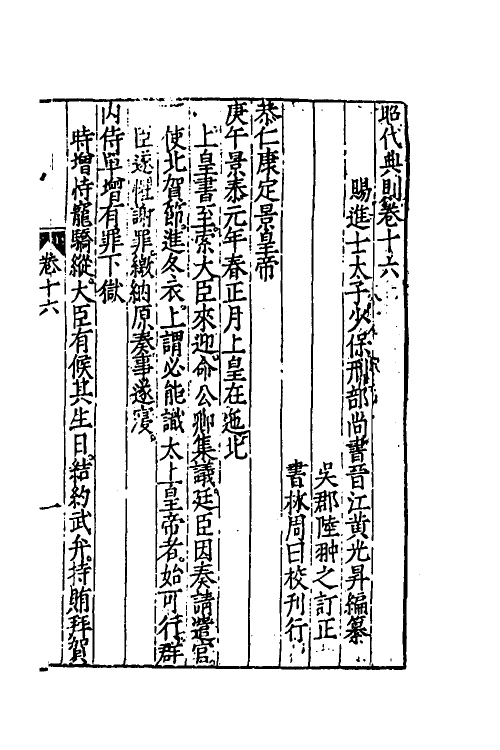 昭代典則卷十六
賜進士太子少保刑部尚書晉江黃光昇編纂
吳郡陸翀之訂正
書林周曰校刊行
恭仁康定景皇帝
庚午景泰元年春正月上皇在迤北
上皇書至索大臣來迎命公卿集議廷臣因奏請遣官
使北賀節進冬衣上謂必能識太上皇帝者始可行群
臣遂惶謝罪繳納原奏事遂寢
內侍單增有罪下獄
時增恃寵驕縱大臣有候其生日結約武弁持賄拜賀
卷十六
一